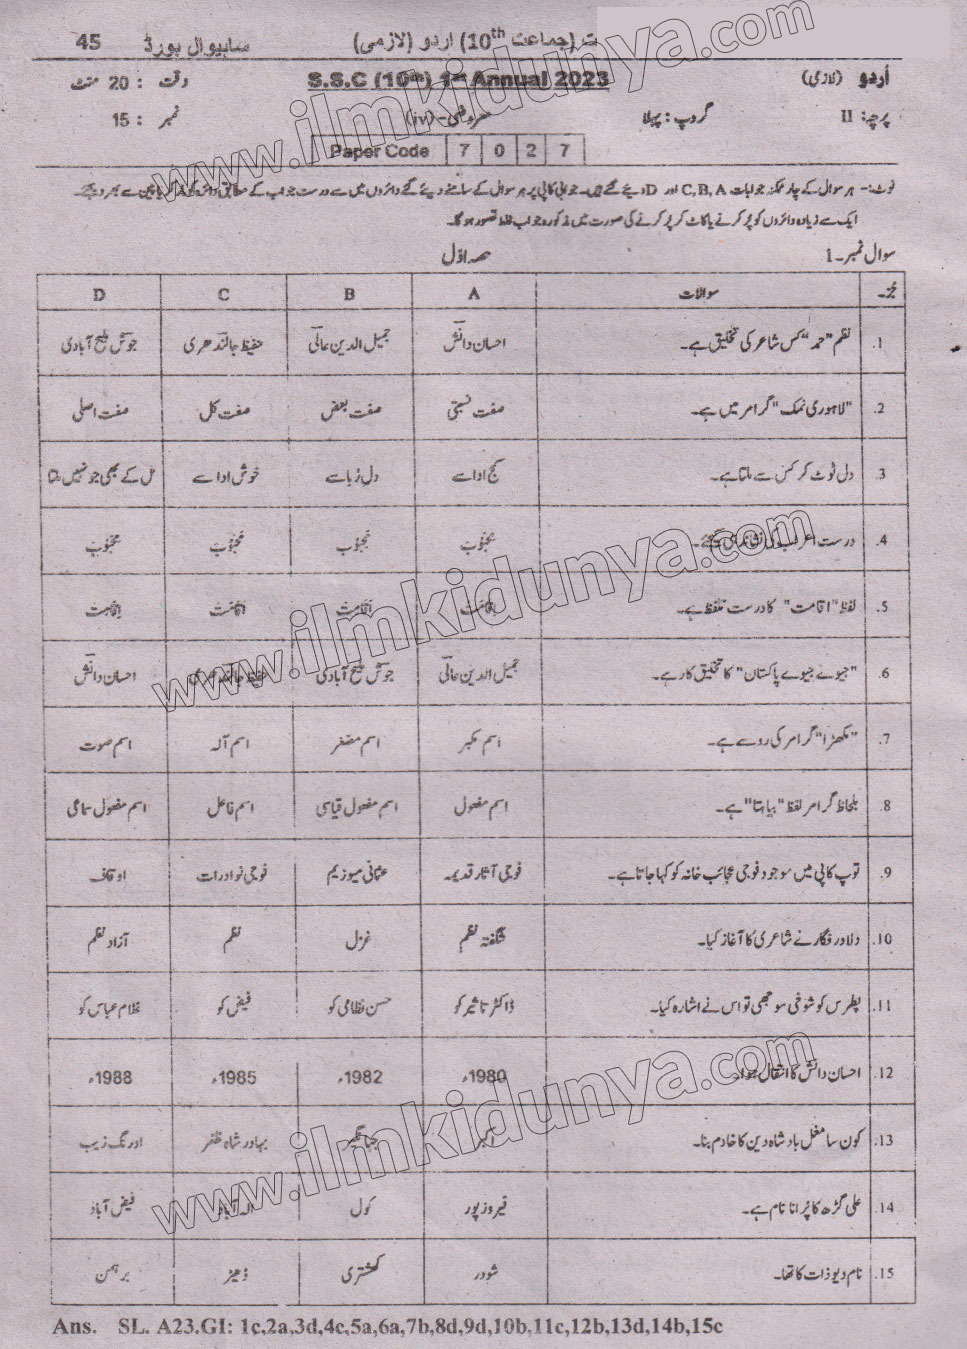 ت (جماعت 10th) اردو (لازمی) ساہیوال بورڈ 45
اُردو (لازمی) S.S.C (10th) 1st Annual 2023 وقت : 20 منٹ
پرچہ: II گروپ: پہلا معروضی-(iv) نمبر : 15
Paper Code 7 0 2 7
نوٹ:- ہر سوال کے چار ممکنہ جوابات C,B,A اور D دیئے گئے ہیں۔ جوابی کاپی پر ہر سوال کے سامنے دیئے گئے دائروں میں سے درست جواب کے مطابق دائرہ کو مارکر یا پین سے بھر دیجئے۔
ایک سے زیادہ دائروں کو پُر کرنے یا کاٹ کر پُر کرنے کی صورت میں مذکورہ جواب غلط تصور ہوگا۔
سوال نمبر۔1 حصہ اوّل
جُز۔ سوالات A B C D
1. نظم "حمد" کس شاعر کی تخلیق ہے۔ احسان دانش جمیل الدین عالی حفیظ جالندھری جوش ملیح آبادی
2. "لاہوری نمک" گرامر میں ہے۔ صفت نسبتی صفت بعض صفت کل صفت اصلی
3. دل ٹوٹ کر کس سے ملتا ہے۔ کج ادا سے دل رُبا سے خوش ادا سے مل کے بھی جو نہیں ملتا
4. درست اعراب کی نشاندہی کیجئے۔
5. لفظ "اقامت" کا درست تلفظ ہے۔
6. "جیوے جیوے پاکستان" کا تخلیق کار ہے۔ جمیل الدین عالی جوش ملیح آبادی حفیظ جالندھری احسان دانش
7. "مکھڑا" گرامر کی رو سے ہے۔ اسم مکبر اسم مصغر اسم آلہ اسم صوت
8. بلحاظ گرامر لفظ "بیاہتا" ہے۔ اسم مفعول اسم مفعول قیاسی اسم فاعل اسم مفعول سماعی
9. توپ کاپی میں موجود فوجی عجائب خانہ کو کہا جاتا ہے۔ فوجی آثار قدیمہ عثمانی میوزیم فوجی نوادرات اوقاف
10. دلاور فگار نے شاعری کا آغاز کیا۔ شگفتہ نظم غزل نظم آزاد نظم
11. پطرس کو شوخی سوجھی تو اس نے اشارہ کیا۔ ڈاکٹر تاثیر کو حسن نظامی کو فیض کو غلام عباس کو
12. احسان دانش کا انتقال ہوا۔ 1980ء 1982ء 1985ء 1988ء
13. کون سا مغل بادشاہ دین کا خادم بنا۔ اکبر جہانگیر بہادر شاہ ظفر اورنگ زیب
14. علی گڑھ کا پُرانا نام ہے۔ فیروز پور کول الہ آباد فیض آباد
15. نام دیو ذات کا تھا۔ شودر کھشتری ڈھیڑ برہمن
Ans. SL. A23.GI: 1c,2a,3d,4c,5a,6a,7b,8d,9d,10b,11c,12b,13d,14b,15c
www.ilmkidunya.com
www.ilmkidunya.com
www.ilmkidunya.com